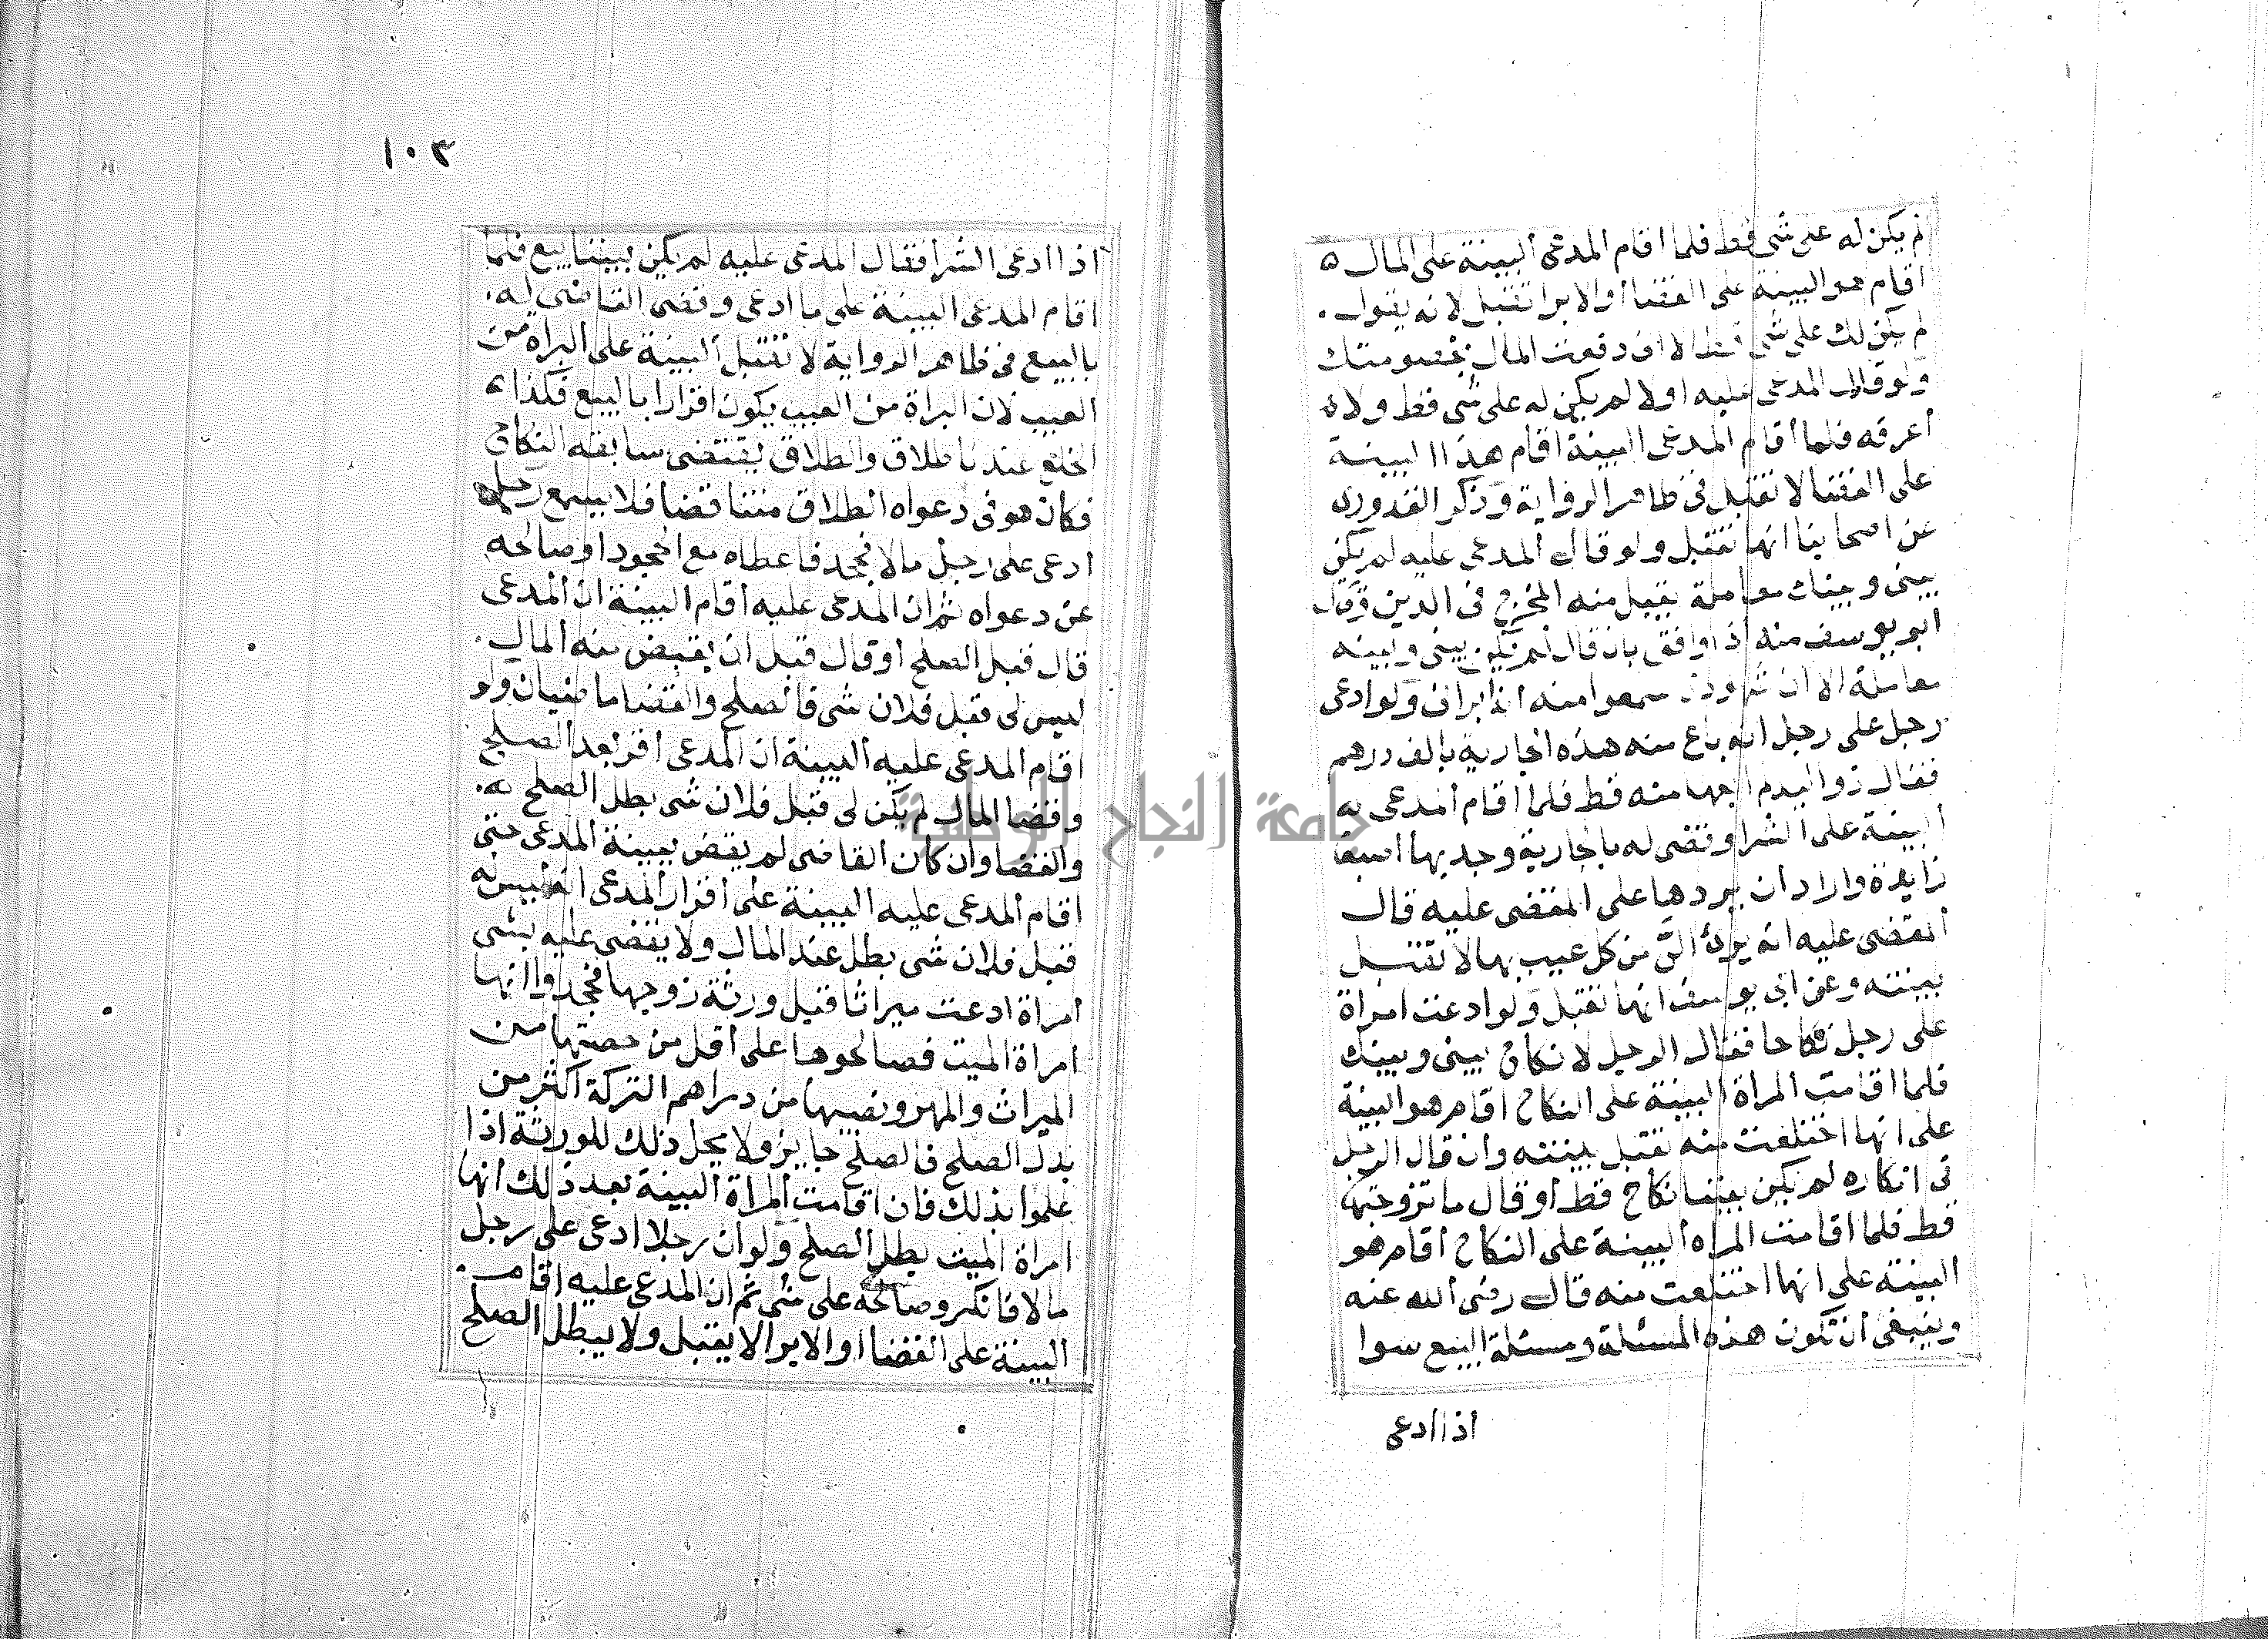 لم يكن له على شى قط فلما اقام المدعى البينة على المال ٥
اقام هو البينة على القضا أو الابرا تقبل لانه يقول .
لم يكن لك على شى قط الا انى دفعت المال بخصومتك
ولو قال المدعى عليه اولا لم يكن له على شى قط ولا
أعرفه فلما أقام المدعى البينة اقام هذا البينة
على القضا لا تقبل فى ظاهر الرواية وذكر القدورى
عن اصحابنا انها تقبل ولو قال المدعى عليه لم يكن
بينى وبينك معاملة يقبل منه المخرج فى الدين وقال
ابو يوسف منه اذا وافق بان قال لم يكن بينى وبينه
معاملة الا ان شهودى سمعوا منه انه ابرانى ولو ادعى
رجل على رجل انه باع منه هذه الجارية بالف درهم
فقال ذو اليد لم ابعها منه قط فلما اقام المدعى به
البينة على الشرا وقضى له بالجارية وجد بها اصبعا
زايدة واراد ان يردها على المقضى عليه قال
المقضى عليه انه برئ الى من كل عيب بها لا تقبل
بينته وعن ابى يوسف انها تقبل ولو ادعت امراة
على رجل نكاحا فقال الرجل لا نكاح بينى وبينك
فلما اقامت المراة البينة على النكاح اقام هو البينة
على انها اختلعت منه تقبل بينته وان قال الرجل
فى انكاره لم يكن بيننا نكاح قط أو قال ما تزوجتها
قط فلما اقامت المراه البينة على النكاح أقام هو
البينة على انها اختلعت منه قال رضى الله عنه
وينبغى أن تكون هذه المسئلة ومسئلة البيع سوا
اذا ادعى
١٠٣
اذا ادعى الشرا فقال المدعى عليه لم يكن بيننا بيع فلما
اقام المدعى البينة على ما ادعى وقضى القاضى له.
بالبيع فى ظاهر الرواية لا تقبل البينة على البراه من
العيب لان البراة من العيب يكون اقرارا بالبيع فكذا
الخلع عندنا طلاق والطلاق يقتضى سابقه النكاح
فكان هو فى دعواه الطلاق متناقضا فلا يسمع رجل
ادعى على رجل مالا فجحد فاعطاه مع الجحود او صالحه
عن دعواه ثم ان المدعى عليه أقام البينة ان المدعى
قال قبل الصلح أو قال قبل ان يقبض منه المال .
ليس لى قبل فلان شى فالصلح والقضا ماضيان ولو
اقام المدعى عليه البينة ان المدعى أقر بعد الصلح
وقضا المال لم يكن لى قبل فلان شى بطل الصلح
والقضا وان كان القاضى لم يقض ببينة المدعى حتى
اقام المدعى عليه البينة على أقرار المدعى انه ليس له
قبل فلان شى بطل عنه المال ولا يقضى عليه بشى
امراة ادعت ميراثا قبل ورثة زوجها فجحدوا انها
امراة الميت فصالحوها على أقل من حصتها من
الميراث والمهر ونصيبها من دراهم التركة اكثر من
بدل الصلح فالصلح جايز ولا يحل ذلك للورثة اذا
علموا بذلك فان اقامت المراة البينة بعد ذلك انها
امراة الميت بطل الصلح ولو ان رجلا ادعى على رجل
مالا فانكر وصالحه على شى ثم ان المدعى عليه اقام .
البينة على القضا او الابرا لا يقبل ولا يبطل الصلح
جامعة النجاح الوطنية